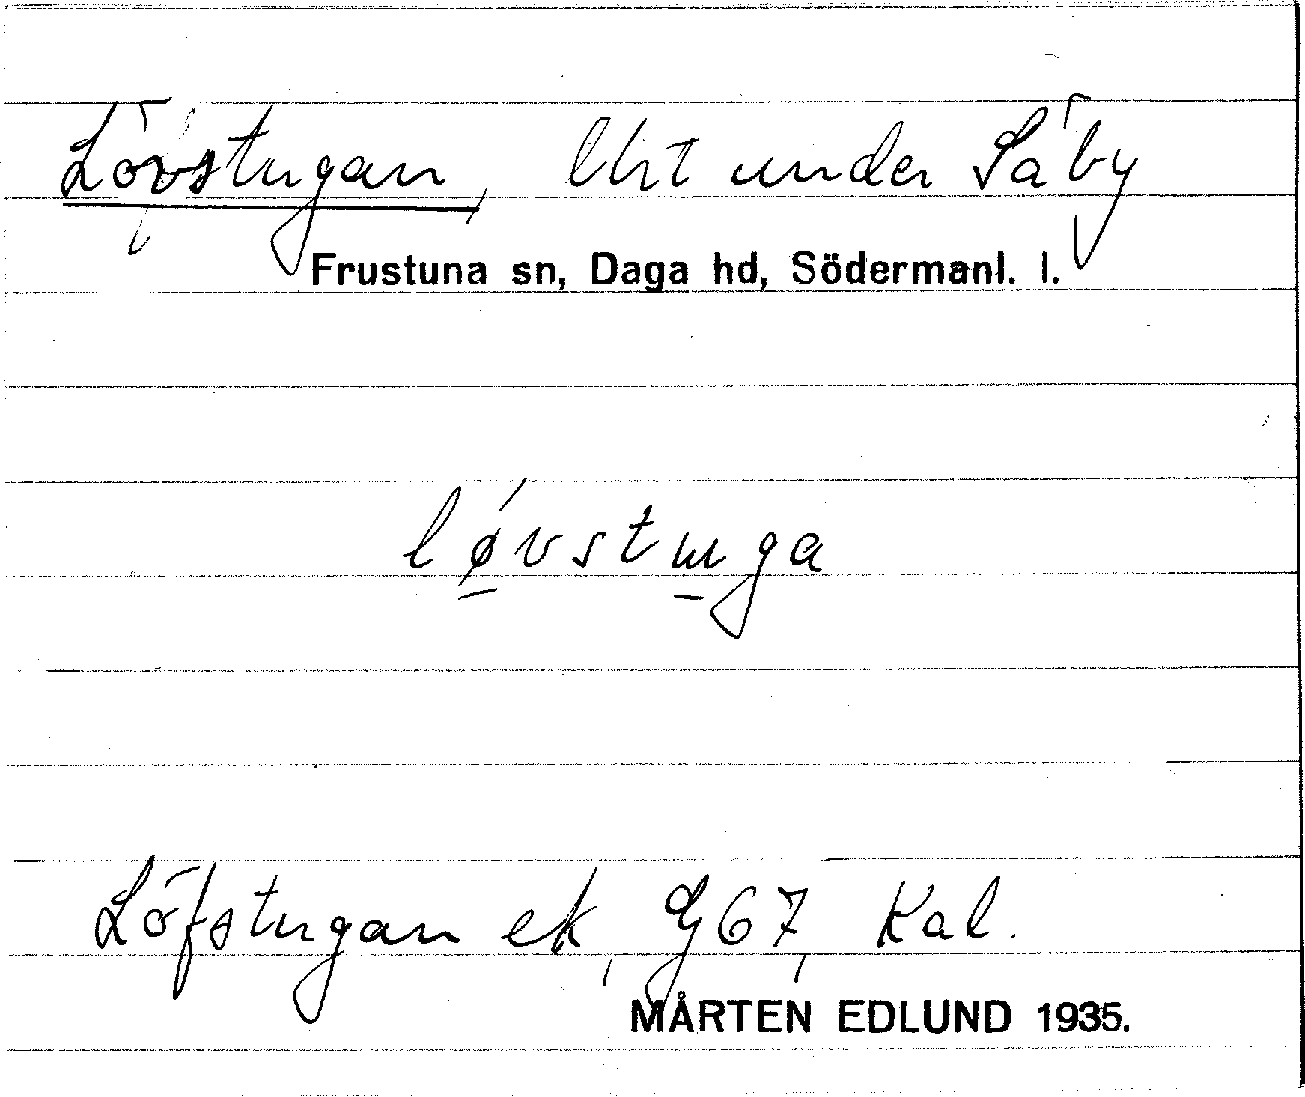 Lövstugan, lht under Säby
Frustuna sn, Daga hd, Södermanl. l.
lǿ̱vstu̱ga
Löfstugan ek, G67, Kal.
MÅRTEN EDLUND 1935.